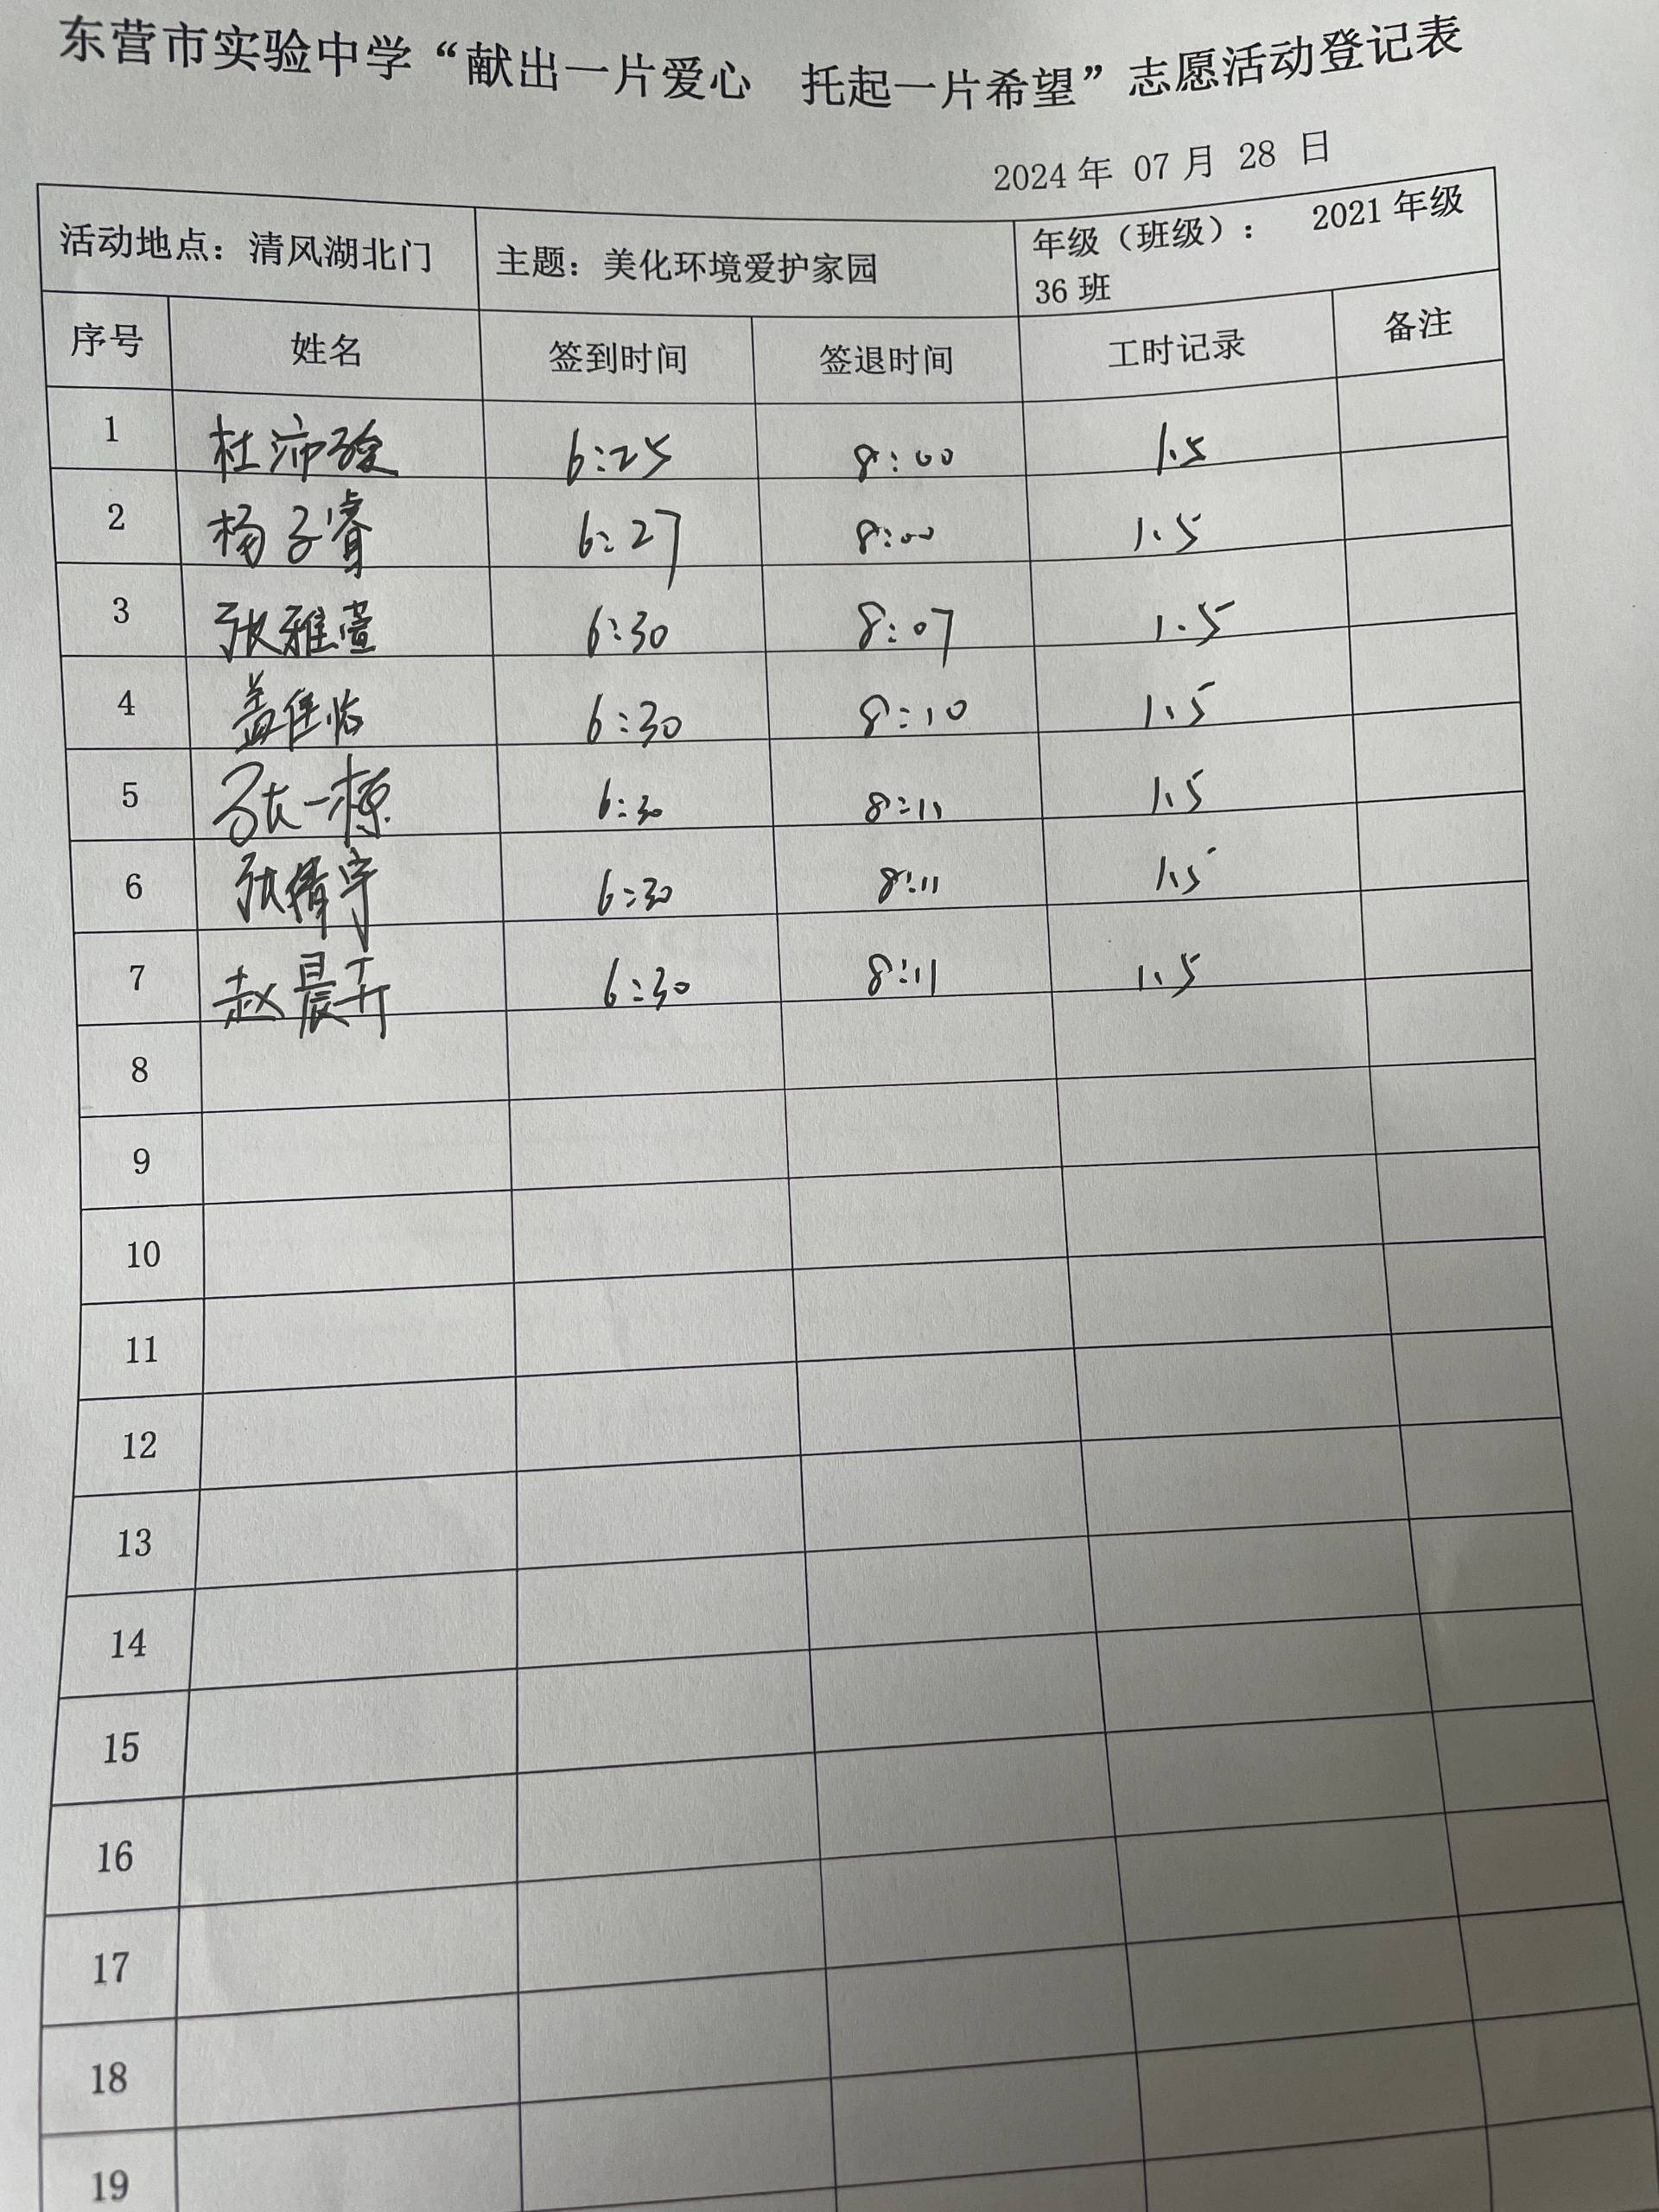 东营市实验中学“献出一片爱心 托起一片希望”志愿活动登记表
2024 年 07 月 28 日
活动地点：清风湖北门 主题：美化环境爱护家园 年级（班级）： 2021 年级
36 班
序号 姓名 签到时间 签退时间 工时记录 备注
1 杜沛 6:25 8:00 1.5
2 杨子睿 6:27 8:00 1.5
3 张雅萱 6:30 8:07 1.5
4 盖 6:30 8:10 1.5
5 张一 6:30 8:11 1.5
6 张倩宇 6:30 8:11 1.5
7 赵晨卉 6:30 8:11 1.5
8
9
10
11
12
13
14
15
16
17
18
19